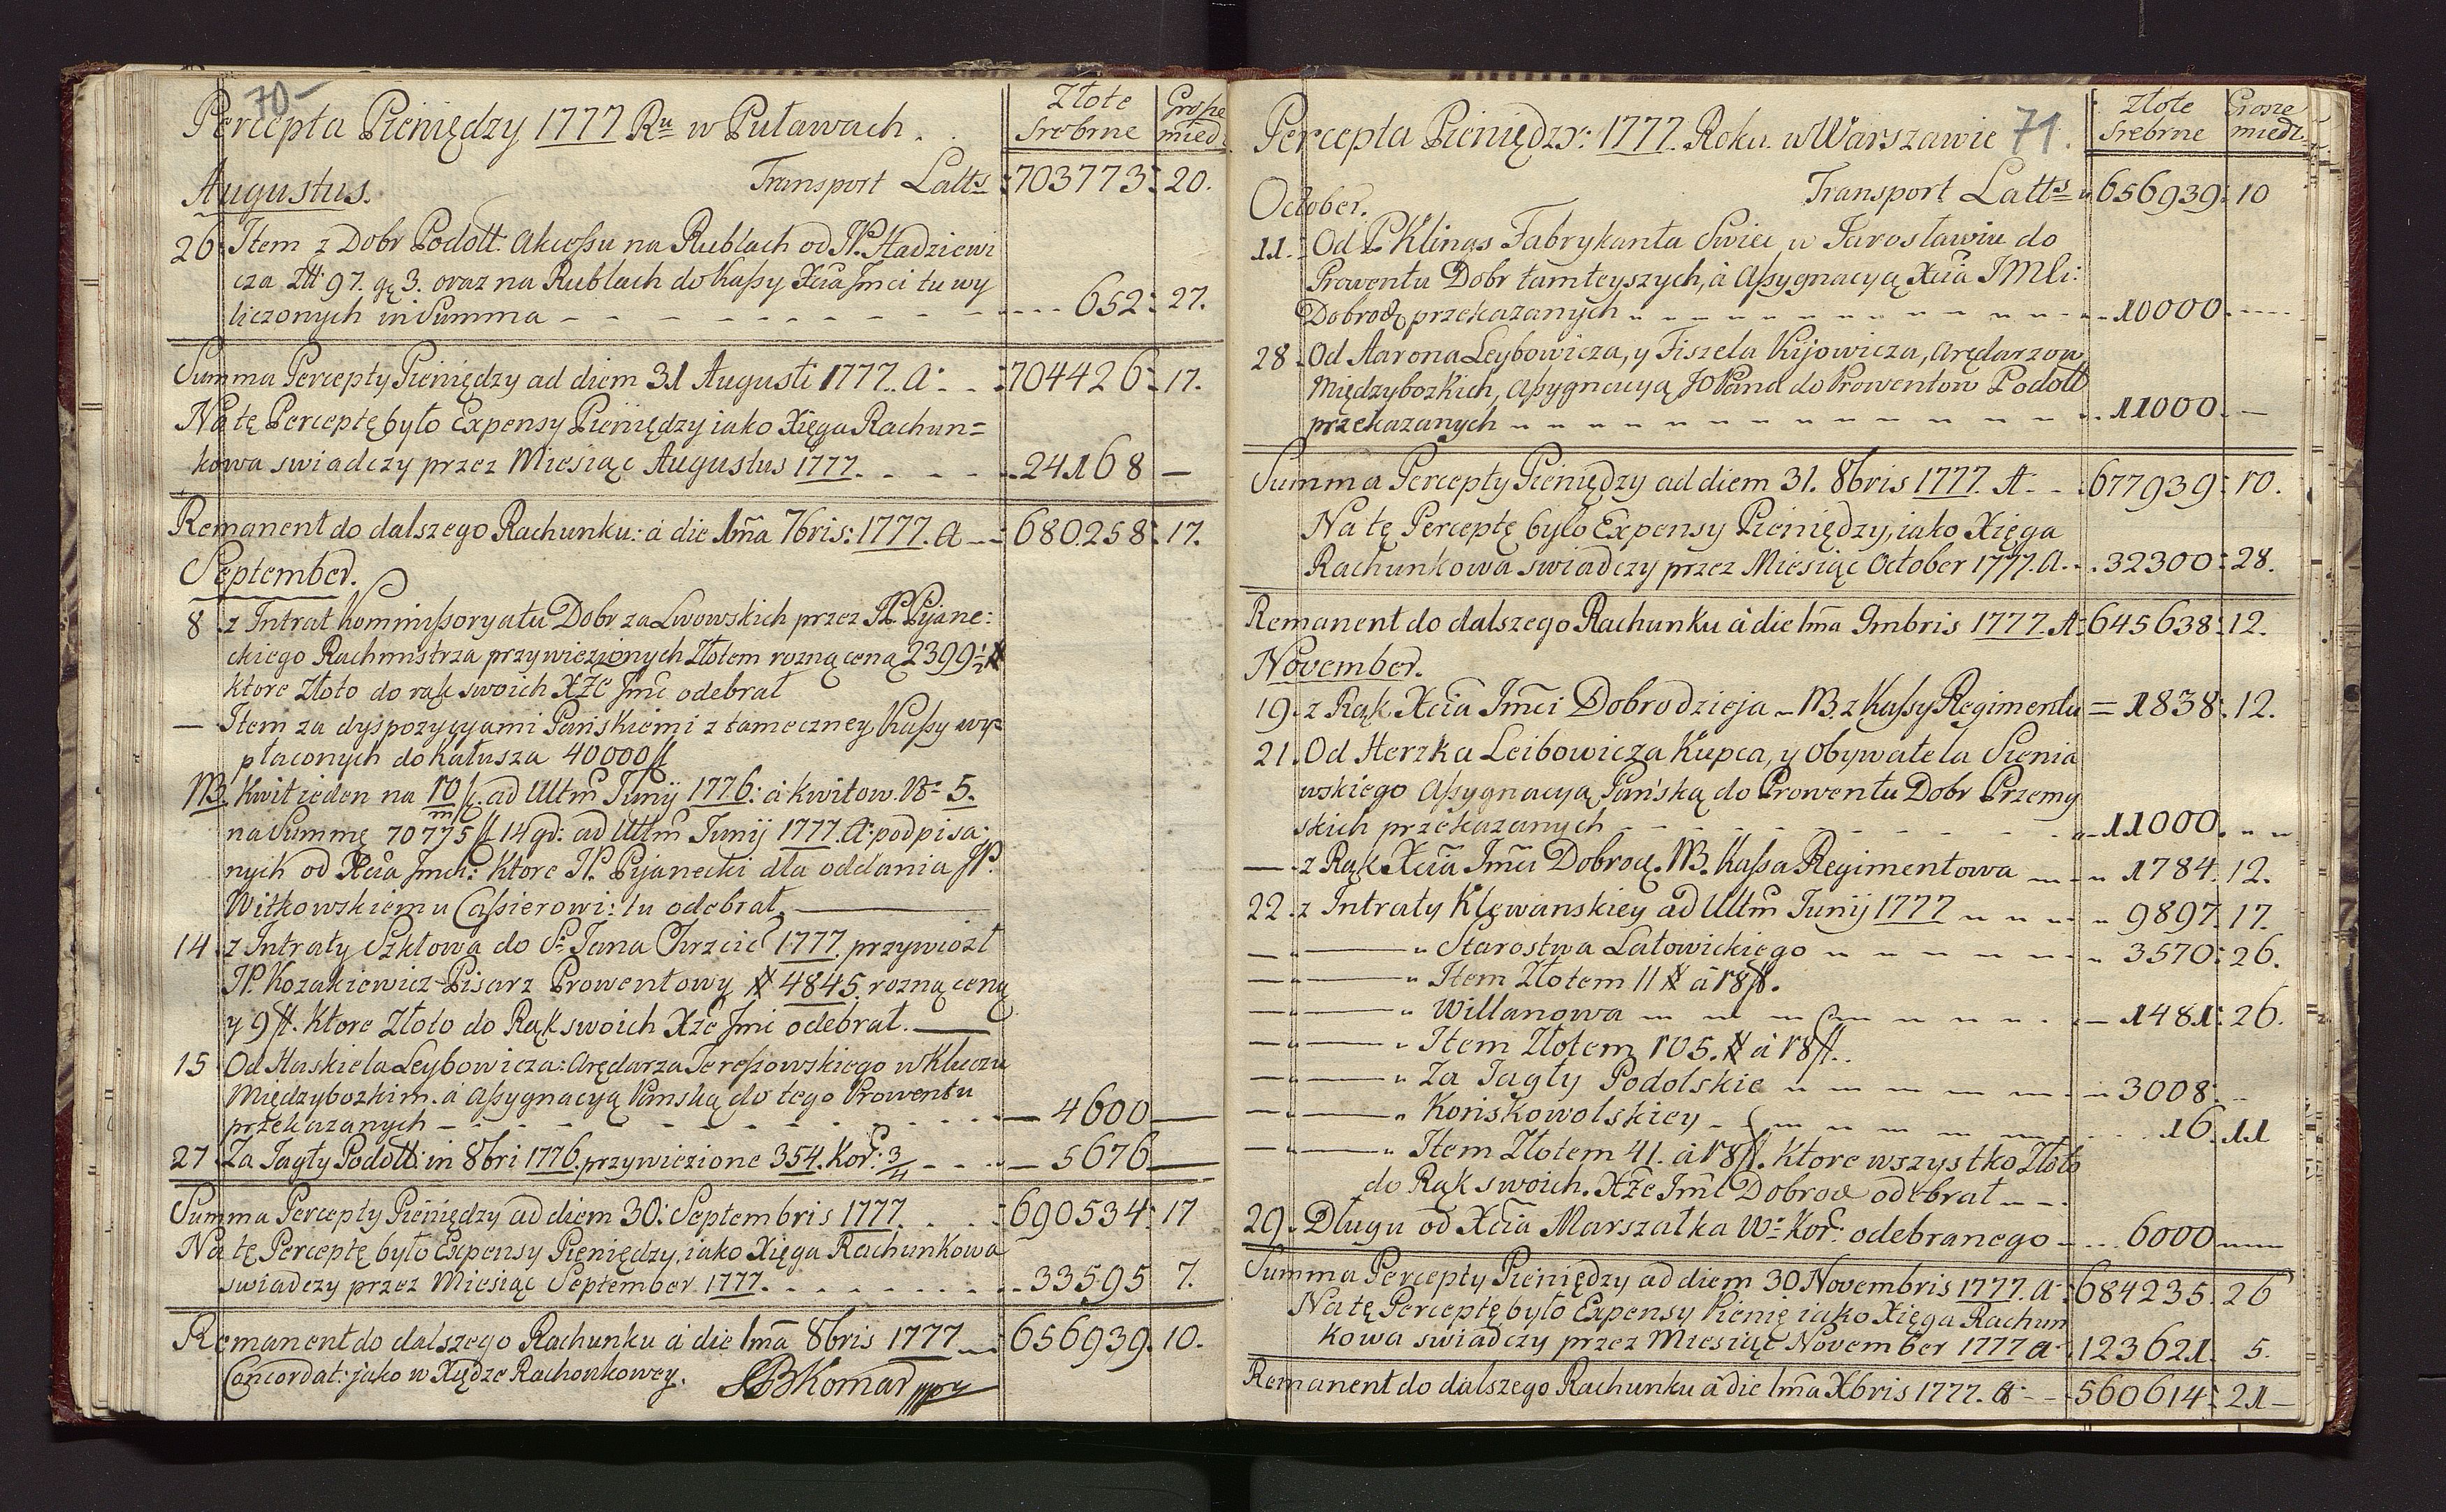 70-
Percepta Pieniędzy 1777 Ru w Puławach.
Złote Srebrne
Grosze mied:
Augustus. Transport Latts 703773: 20.
26. Item z Dobr Podoll. Akcessu na Rublach od JP. Hadziewi
cza Złł 97. gę 3. oraz na Rublach do Kassy Xcia Jmci tu wy
liczonych in Summa 652: 27.
Summa Percepty Pieniędzy ad diem 31 Augusti 1777. A: 704426: 17.
Na tę Perceptę było Expensy Pieniędzy iako Xięga Rachun=
kowa swiadczy przez Miesiąc Augustus 1777. 24168 —
Remanent do dalszego Rachunku: á die 1ma 7bris: 1777. A 680258: 17.
September.
8. z Intrat Kommissoryatu Dobr za Lwowskich przez JP. Pijane:
ckiego Rachmistrza przywiezionych Złotem rozną ceną 2399 1/2 #
ktore Złoto do rąk swoich Xże Jmć odebrał
— Item za dyspozycyjami Pańskiemi z tameczney Kassy wy=
płaconych do Kałusza 40000 fl
NB. Kwit ieden na 10/m fl. ad Ultm Junij 1776: á kwitow. No 5.
na Summę 70775 fl 14 gd: ad Ultm Junij 1777. A: podpisa:
nych od Xcia Jmci: ktore JP. Pijanecki dla oddania JP.
Witkowskiemu Cassierowi: tu odebrał.
14. z Intraty Szkłowa do S: Jana Chrzcic 1777. przywiozł
JP. Kozakiewicz Pisarz Prowentowy # 4845 rozną ceną
y 9 fl. ktore Złoto do Rąk swoich Xże Jmć odebrał.
15 Od Haskiela Leybowicza: Arędarza Teressowskiego w Kluczu
Międzybozkim. á Assygnacyą Pańską do tego Prowentu
przekazanych 4600
27 Za Jagły Podoll: in 8bri 1776. przywiezione 354. Kor: 3/4 5676
Summa Percepty Pieniędzy ad diem 30: Septembris 1777. 690534: 17
Na tę Perceptę było Expensy Pieniędzy. iako Xięga Rachunkowa
swiadczy przez Miesiąc September 1777. 33595 7.
Remanent do dalszego Rachunku á die 1ma 8bris 1777 656939. 10.
Concordat: jako w Xiędze Rachonkowey. SBKomar mpp
Percepta Pieniędzy: 1777. Roku. w Warszawie 71.
Złote Srebrne
Grosze miedz.
October. Transport Latts 656939: 10
11. Od P Klings Fabrykanta Swiec w Jarosławiu do
Prowentu Dobr tamteyszych, á Assygnacyą Xcia JMci:
Dobrodz przekazanych 10000
28. Od Aarona Leybowicza, y Fiszela Kijowicza, Arędarzow
Międzybozkich, Assygnacyą JO Pana do Prowentow Podoll
przekazanych 11000 —
Summa Percepty Pieniędzy ad diem 31. 8bris 1777. A 677939: 10.
Na tę Perceptę było Expensy Pieniędzy, iako Xięga
Rachunkowa swiadczy przez Miesiąc October 1777. A. 32300: 28.
Remanent do dalszego Rachunku á die 1ma 9mbris 1777. A: 645638: 12.
November.
19. z Rąk Xcia Jmci Dobrodzieja — NB. z Kassy Regimentu = 1838: 12.
21. Od Herzka Leibowicza Kupca, y Obywatela Sienia
wskiego Assygnacyą Pańską do Prowentu Dobr Przemy
skich przekazanych 11000.
— z Rąk Xcia Jmci Dobrod. NB. Kassa Regimentowa 1784. 12.
22. z Intraty Klewanskiey ad Ultm Junij 1777 9897. 17.
— " Starostwa Latowickiego 3570: 26.
— " Item Złotem 11 # á 18 fl.
— " Willanowa 1481: 26.
— " Item Złotem 105. # á 18 fl.
— " Za Jagły Podolskie 3008:
— " Końskowolskiey 16. 11
— " Item Złotem 41. á 18 fl. ktore wszystko Złoto
do Rąk swoich. Xże Jmć Dobrod odebrał
29. Długu od Xcia Marszałka W: Kor: odebranego 6000
Summa Percepty Pieniędzy ad diem 30 Novembris 1777. A 684235. 26
Na tę Perceptę było Expensy Pienię iako Xięga Rachun
kowa swiadczy przez Miesiąc November 1777 A 123621. 5.
Remanent do dalszego Rachunku á die 1ma Xbris 1777. A 560614: 21